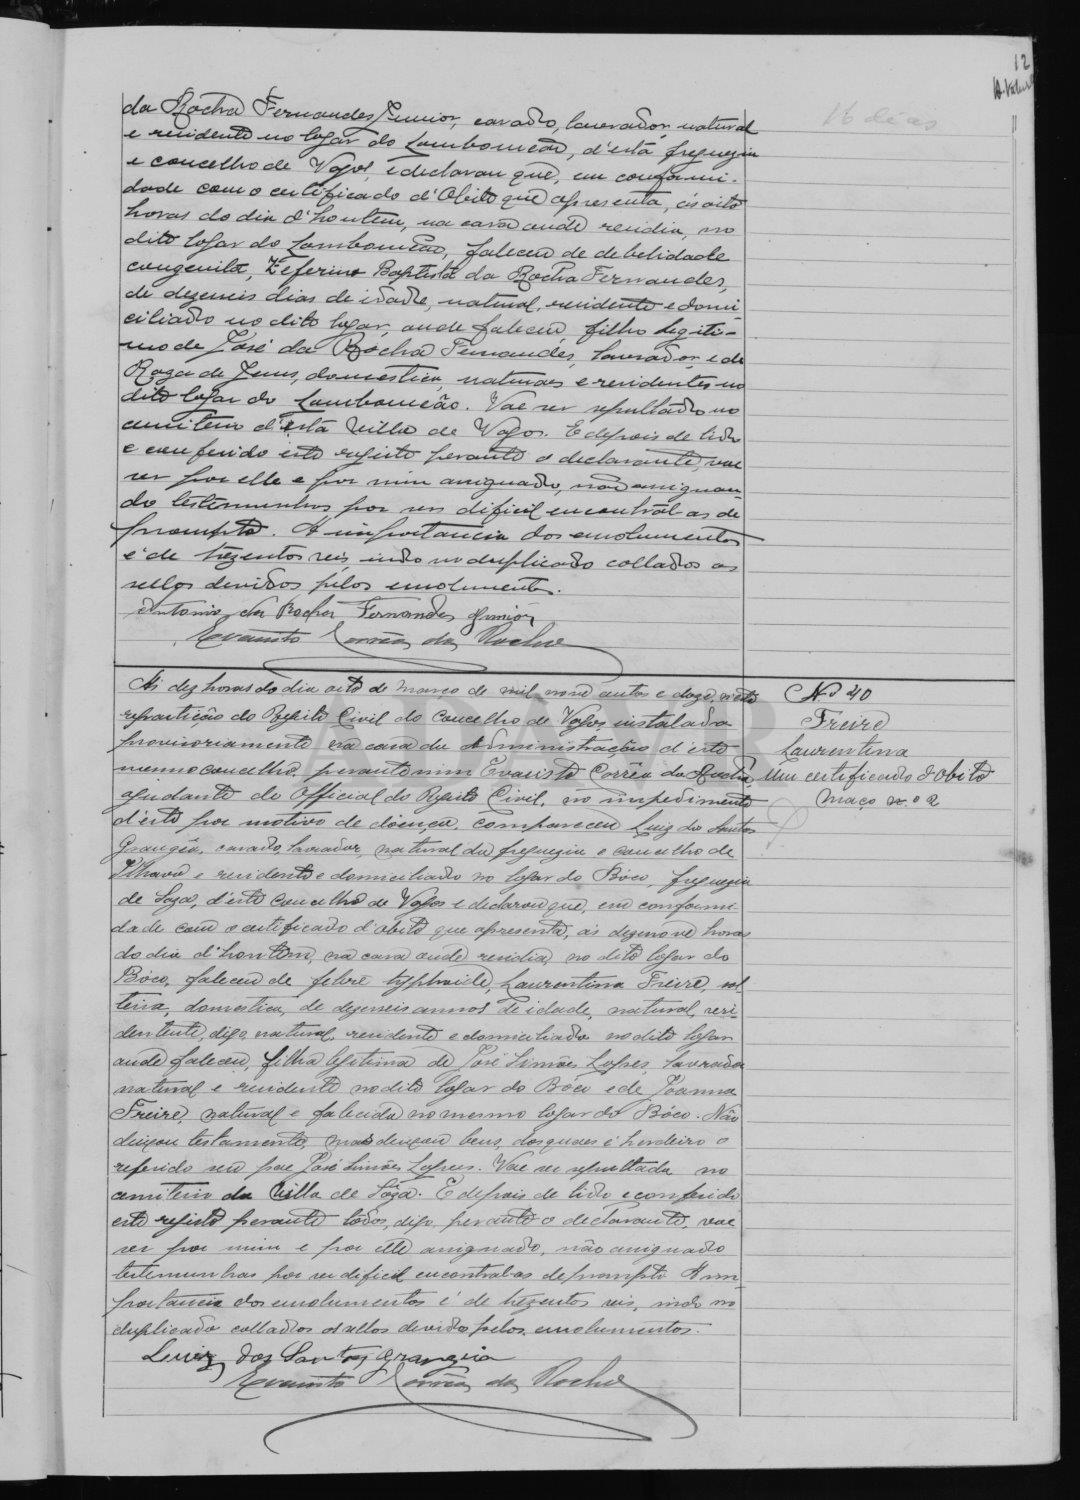 12
16 dias
da Rocha Fernandes Junior, casado, lavrador, natural
e residente no logar do Lombomeão, d'esta freguezia
e concelho de Vagos, e declarou que, em conformi-
dade com o certificado d'Obito que apresenta, ás oito
horas do dia d'hontem, na casa onde residia, no
dito logar do Lombomeão, faleceu de debelidade
congenita, Zeferino Baptista da Rocha Fernandes,
de dezeseis dias de idade, natural, residente e domi-
ciliado no dito logar, onde faleceu, filho legiti-
mo de José da Rocha Fernandes, lavrador, e de
Roza de Jesus, domestica, naturaes e residentes no
dito logar do Lombomeão. Vae ser sepultado no
cemiterio d'esta Villa de Vagos. E depois de lido
e conferido este registo perante o declarante, vae
ser por elle e por mim assignado, não assignan-
do testemunhas por ser dificil encontral-as de
prompto. A importancia dos emolumentos
é de trezentos reis, indo no duplicado collados os
sellos devidos pelos emolumentos.
Antonio da Rocha Fernandes Junior
Evaristo Corrêa da Rocha
Nº 40
Freire
Laurentina
Um certificado d'obito
Maço nº 2
Ás dez horas do dia oito de março de mil nove centos e doze, n'esta
repartição do Registo Civil do Concelho de Vagos installada
provisoriamente na casa da Administração d'este
mesmo concelho, perante mim Evaristo Corrêa da Rocha,
ajudante do Official do Registo Civil, no impedimento
d'este por motivo de doença, compareceu Luiz dos Santos
Grangêa, casado, lavrador, natural da freguezia e concelho de
Ilhavo e residente e domiciliado no logar do Bôco, freguezia
de Soza, d'este concelho de Vagos e declarou que, em conformi-
dade com o certificado d'obito que apresenta, ás dezenove horas
do dia d'hontem, na casa onde residia, no dito logar do
Bôco, faleceu de febre typhoide, Laurentina Freire, sol-
teira, domestica, de dezeseis annos de idade, natural, resi-
dentente, digo, natural, residente e domiciliada no dito logar
onde faleceu, filha legitima de José Simões Lopes, lavrador
natural e residente no dito logar do Bôco e de Joanna
Freire, natural e falecida no mesmo logar do Bôco. Não
deixou testamento, mas deixou bens, dos quaes é herdeiro o
referido seu pae José Simões Lopes. Vae ser sepultada no
cemiterio da Villa de Sôza. E depois de lido e conferido
este registo perante todos, digo, perante o declarante, vae
ser por mim e por elle assignado, não assignado
testemunhas por ser dificil encontral-as de prompto. A im-
portancia dos emolumentos é de trezentos reis, indo no
duplicado collados os sellos devidos pelos emolumentos.
Luiz dos Santos Grangeia
Evaristo Corrêa da Rocha
ADAVR